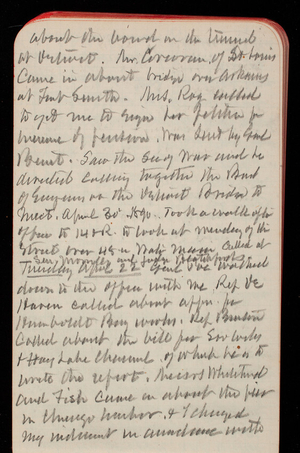 about the board on the tunnel
at Detroit. Mr. Corcoran, of St. Louis
Came in about bridge over Arkansas
at Fort Smith. Mrs. Ray called
to get me to sign her petition for
increase of pension. Was sent by Genl
Benet. Saw the Secy War and he
directed calling together the Board
of Engineers on the Detroit Bridge to
meet April 30 1890. Took a walk after
office to 14 & R to look at
Street over 48
Called at
Tuesday April 22 Genl walked
down to the office with me Rep De
Haven called about appn. for
Humboldt Bay works. Rep
Called about the bill for
& Hay Lake Channel of which he is to
write the report. Messrs
and Fish came in about the pier
in Chicago harbor & I changed
my indorsement in accordance with